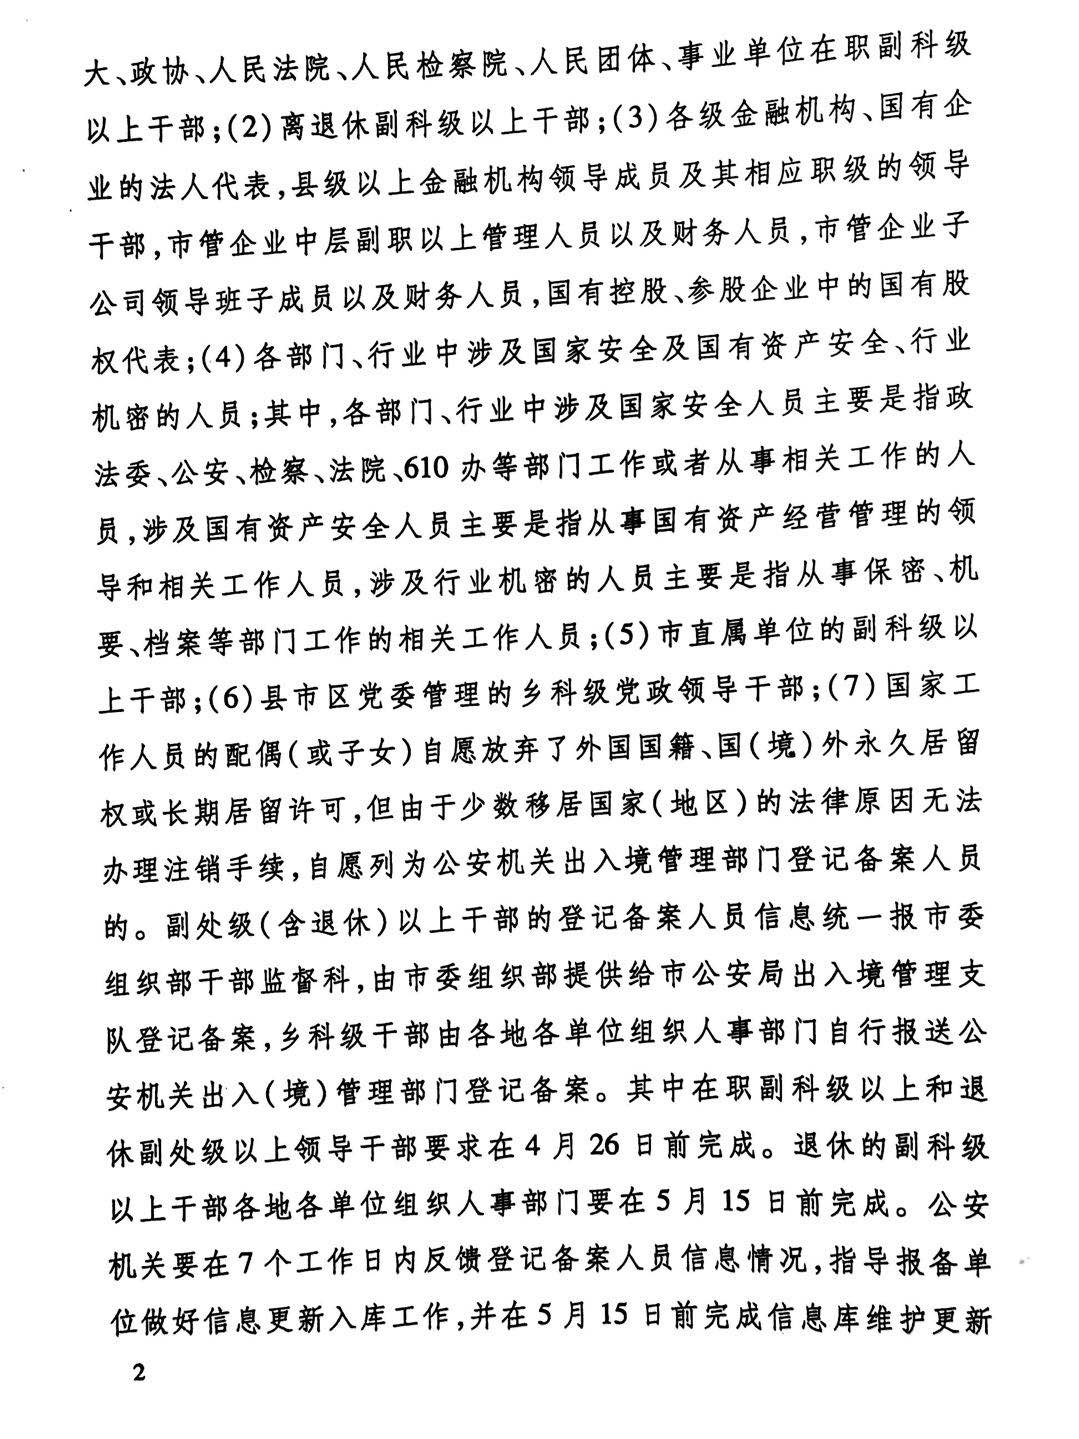 大、政协、人民法院、人民检察院、人民团体、事业单位在职副科级
以上干部;(2)离退休副科级以上干部;(3)各级金融机构、国有企
业的法人代表,县级以上金融机构领导成员及其相应职级的领导
干部,市管企业中层副职以上管理人员以及财务人员,市管企业子
公司领导班子成员以及财务人员,国有控股、参股企业中的国有股
权代表;(4)各部门、行业中涉及国家安全及国有资产安全、行业
机密的人员;其中,各部门、行业中涉及国家安全人员主要是指政
法委、公安、检察、法院、610 办等部门工作或者从事相关工作的人
员,涉及国有资产安全人员主要是指从事国有资产经营管理的领
导和相关工作人员,涉及行业机密的人员主要是指从事保密、机
要、档案等部门工作的相关工作人员;(5)市直属单位的副科级以
上干部;(6)县市区党委管理的乡科级党政领导干部;(7)国家工
作人员的配偶(或子女)自愿放弃了外国国籍、国(境)外永久居留
权或长期居留许可,但由于少数移居国家(地区)的法律原因无法
办理注销手续,自愿列为公安机关出入境管理部门登记备案人员
的。副处级(含退休)以上干部的登记备案人员信息统一报市委
组织部干部监督科,由市委组织部提供给市公安局出入境管理支
队登记备案,乡科级干部由各地各单位组织人事部门自行报送公
安机关出入(境)管理部门登记备案。其中在职副科级以上和退
休副处级以上领导干部要求在 4 月 26 日前完成。退休的副科级
以上干部各地各单位组织人事部门要在 5 月 15 日前完成。公安
机关要在 7 个工作日内反馈登记备案人员信息情况,指导报备单
位做好信息更新入库工作,并在 5 月 15 日前完成信息库维护更新
2